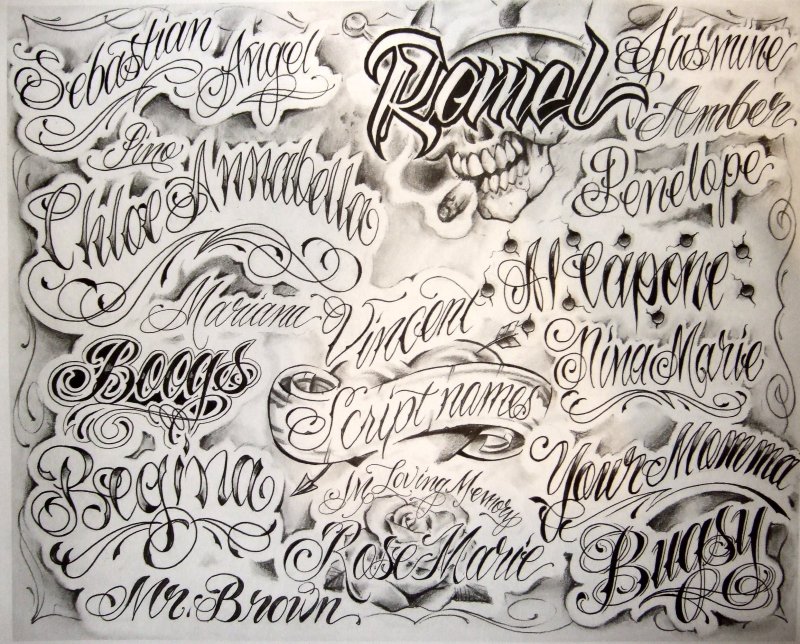 Sebastian
Angel
Ramel
Jasmine
Amber
Pino
Chloe
Annabella
Penelope
Al Capone
Mariana
Vincent
Boogs
Nina Marie
Script names
Regina
In Loving Memory
Your Momma
Rose Marie
Bugsy
Mr. Brown